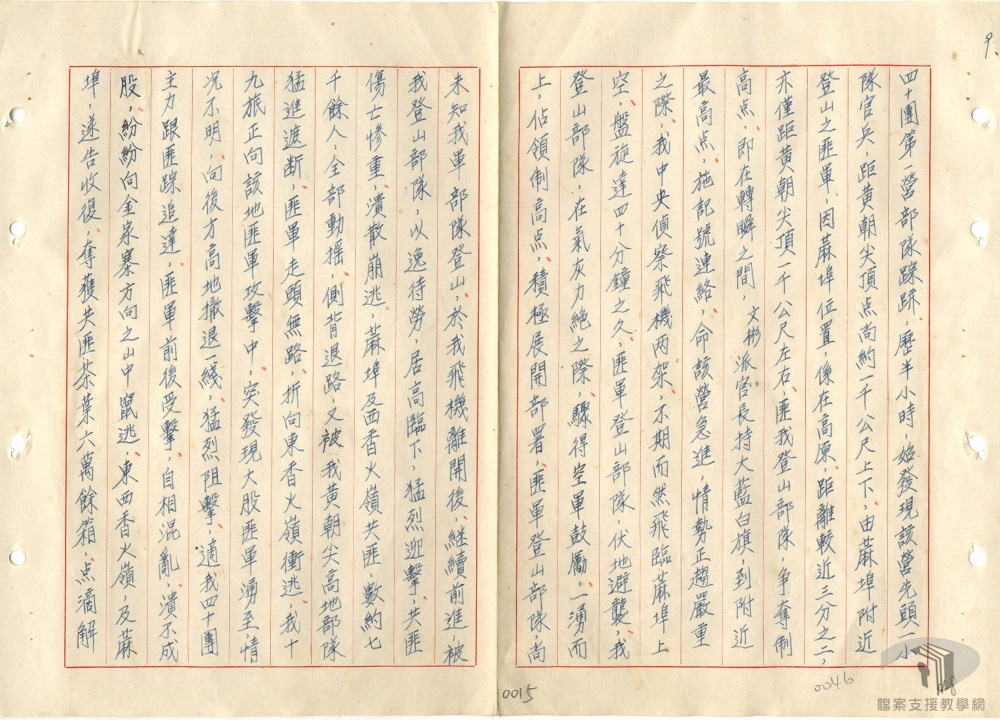 9.
四十團第一營部隊踩跡，歷半小時，始發現該營先頭一小
隊官兵，距黃朝尖頂點尚約一千公尺上下，由蔴埠附近
登山之匪軍，因蔴埠位置，係在高原，距離較近三分之二，
亦僅距黃朝尖頂一千公尺左右，匪我登山部隊，爭奪制
高点，即在轉瞬之間，文彬派官長持大藍白旗，到附近
最高点，施記號連絡，命該營急進，情勢正趨嚴重
之際，我中央偵察飛機兩架，不期而然飛臨蔴埠上
空，盤旋達四十分鐘之久，匪軍登山部隊，伏地避襲，我
登山部隊，在氣灰力絕之際，驟得空軍鼓勵，一湧而
上，佔領制高点，積極展開部署，匪軍登山部隊，尚
未知我軍部隊登山，於我飛機離開後，繼續前進，被
我登山部隊，以逸待勞，居高臨下，猛烈迎擊，共匪
傷亡慘重，潰散崩逃，蔴埠及西香火嶺共匪，數約七
千餘人，全部動搖，側背退路，又被我黃朝尖高地部隊
猛進遮断，匪軍走頭無路，折向東香火嶺衝逃，我十
九旅正向該地匪軍攻擊中，突發現大股匪軍湧至，情
况不明，向後方高地撤退一綫，猛烈阻擊，適我四十團
主力跟匪踪追達，匪軍前後受擊，自相混亂，潰不成
股，紛紛向金家寨方向之山中竄逃，東西香火嶺，及蔴
埠，遂告收復，奪獲共匪茶葉六萬餘箱，点滴解
0015
0046
檔案支援教學網